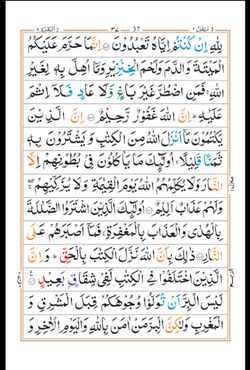 لِلّٰهِ اِنْ كُنْتُمْ اِيَّاهُ تَعْبُدُوْنَ ۝ اِنَّمَا حَرَّمَ عَلَيْكُمُ
الْمَيْتَةَ وَالدَّمَ وَلَحْمَ الْخِنْزِيْرِ وَمَآ اُهِلَّ بِهٖ لِغَيْرِ
اللّٰهِ ۚ فَمَنِ اضْطُرَّ غَيْرَ بَاغٍ وَّلَا عَادٍ فَلَآ اِثْمَ
عَلَيْهِ ؕ اِنَّ اللّٰهَ غَفُوْرٌ رَّحِيْمٌ ۝ اِنَّ الَّذِيْنَ
يَكْتُمُوْنَ مَآ اَنْزَلَ اللّٰهُ مِنَ الْكِتٰبِ وَيَشْتَرُوْنَ بِهٖ
ثَمَنًا قَلِيْلًا ۙ اُولٰٓئِكَ مَا يَاْكُلُوْنَ فِيْ بُطُوْنِهِمْ اِلَّا
النَّارَ وَلَا يُكَلِّمُهُمُ اللّٰهُ يَوْمَ الْقِيٰمَةِ وَلَا يُزَكِّيْهِمْ ۖ
وَلَهُمْ عَذَابٌ اَلِيْمٌ ۝ اُولٰٓئِكَ الَّذِيْنَ اشْتَرَوُا الضَّلٰلَةَ
بِالْهُدٰى وَالْعَذَابَ بِالْمَغْفِرَةِ ۚ فَمَآ اَصْبَرَهُمْ عَلَى
النَّارِ ۝ ذٰلِكَ بِاَنَّ اللّٰهَ نَزَّلَ الْكِتٰبَ بِالْحَقِّ ؕ وَاِنَّ
الَّذِيْنَ اخْتَلَفُوْا فِي الْكِتٰبِ لَفِيْ شِقَاقٍۭ بَعِيْدٍ ۝
لَيْسَ الْبِرَّ اَنْ تُوَلُّوْا وُجُوْهَكُمْ قِبَلَ الْمَشْرِقِ وَ
الْمَغْرِبِ وَلٰكِنَّ الْبِرَّ مَنْ اٰمَنَ بِاللّٰهِ وَالْيَوْمِ الْاٰخِرِ وَ